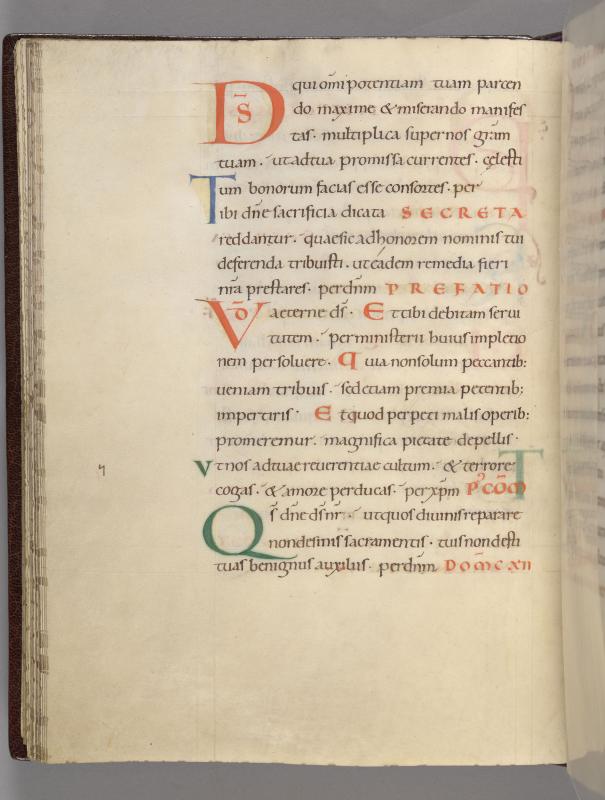 D̅S̅ qui om̅ipotentiam tuam parcen
do maxime & miserando manifes
tas. multiplica super nos gr̅am
tuam. ut ad tua promissa currentes. cęlesti
um bonorum facias esse consortes. per
Tibi dn̅e sacrificia dicata SECRETA
reddantur. quae sic ad honorem nominis tui
deferenda tribuisti. ut eadem remedia fieri
nr̅a prestares. per dn̅m PREFATIO
VO̅ aeterne ds̅. Et tibi debitam servi
tutem. per ministerii huius impletio
nem persolvere. Quia non solum peccantib:
veniam tribuis. sed etiam premia petentib:
impertiris. Et quod perpeti malis operib:
promeremur. magnifica pietate depellis.
Vt nos ad tuae reverentiae cultum. & terrore
cogas. & amore perducas. per xp̅m P̉ CO̅M
Qs̅ dn̅e ds̅ nr̅. ut quos divinis reparare
non desinis sacramentis. tuis non desti
tuas benignus auxiliis. per dn̅m DOM̅C XII